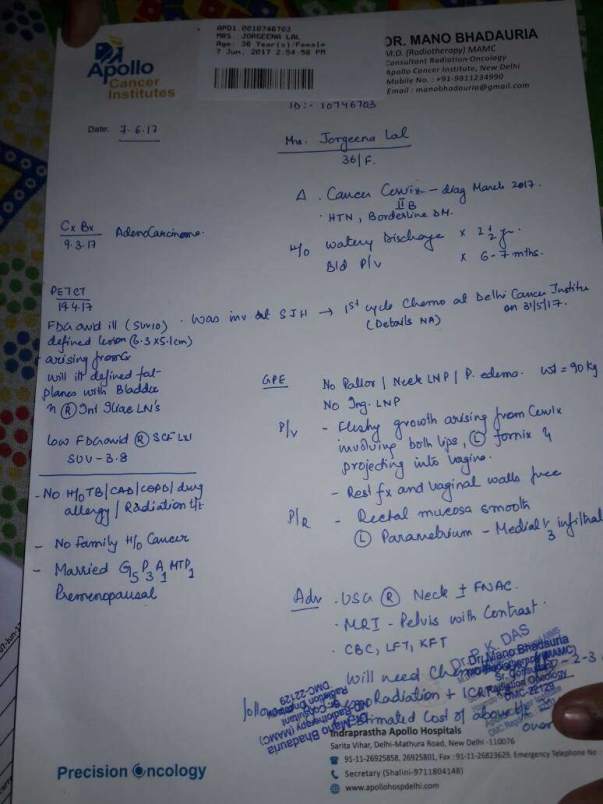 Apollo
Cancer
Institutes
APD1.0010746703
MRS. JORGEENA LAL
Age: 36 Year(s)/Female
7 Jun, 2017 2:54:56 PM
DR. MANO BHADAURIA
M.D. (Radiotherapy) MAMC
Consultant Radiation Oncology
Apollo Cancer Institute, New Delhi
Mobile No. : +91-9811234990
Email : manobhadauria@gmail.com
ID:- 10746703
Date: 7.6.17
Mrs. Jorgeena Lal
36/F.
Δ. Cancer Cervix - diag March 2017.
IIB
· HTN, Borderline DM.
Cx Bx
9.3.17
AdenoCarcinoma.
H/o Watery Discharge x 2½ yr.
Bld P/V x 6-7 mths.
PETCT
19.4.17
FDG avid ill (SUV10)
defined lesion (6.3x5.1cm)
arising from Cx
will ill defined fat
planes with Bladder
n (R) Int Iliac LN's
Low FDG avid (R) SCF LN
SUV-3.8
· Was inv at SJH → 1st cycle Chemo at Delhi Cancer Institu
on 31/5/17.
(Details NA)
GPE
No Pallor / Neck LNP / P. edema. wt = 90 kg
No Ing. LNP
P/V - Fleshy growth arising from Cervix
involving both lips, (L) fornix &
projecting into vagina.
- Rest fx and vaginal walls free
P/R - Rectal mucosa smooth
(L) Parametrium - Medial 1/3 infiltrat
- No H/o TB/CAD/COPD/drug
allergy / Radiation t/t
- No family H/o Cancer
- Married G5 P3 A1 MTP1
Premenopausal
Adv . USG (R) Neck ± FNAC.
· MRI - Pelvis with Contrast.
· CBC, LFT, KFT
Will need Chemo
Radiation + ICRT
Estimated Cost of above
Dr. P. K. DAS
Dr. Mano Bhadauria
Sr. Consultant
Radiation Oncology
DMC-22129
Dr. Mano Bhadauria
Radiotherapy (MAMC)
Sr. Consultant
Radiation Oncology
DMC-22129
Indraprastha Apollo Hospitals
Sarita Vihar, Delhi-Mathura Road, New Delhi -110076
91-11-26925858, 26925801, Fax : 91-11-26823629, Emergency Telephone No
Secretary (Shalini-9711804148)
www.apollohospdelhi.com
Precision Oncology